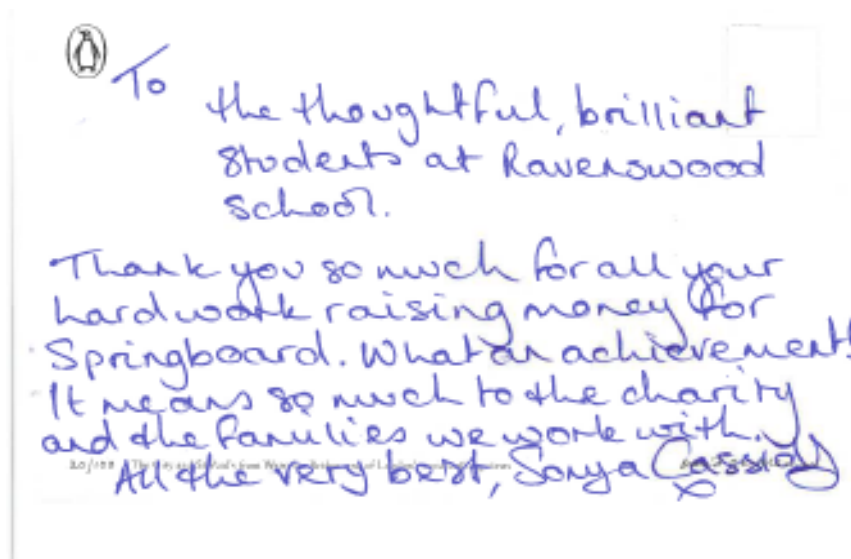 To
the thoughtful, brilliant
students at Ravenswood
school.
Thank you so much for all your
hard work raising money for
Springboard. What an achievement!
It means so much to the charity
and the families we work with.
20/100
All the very best, Sonya Cassidy
x